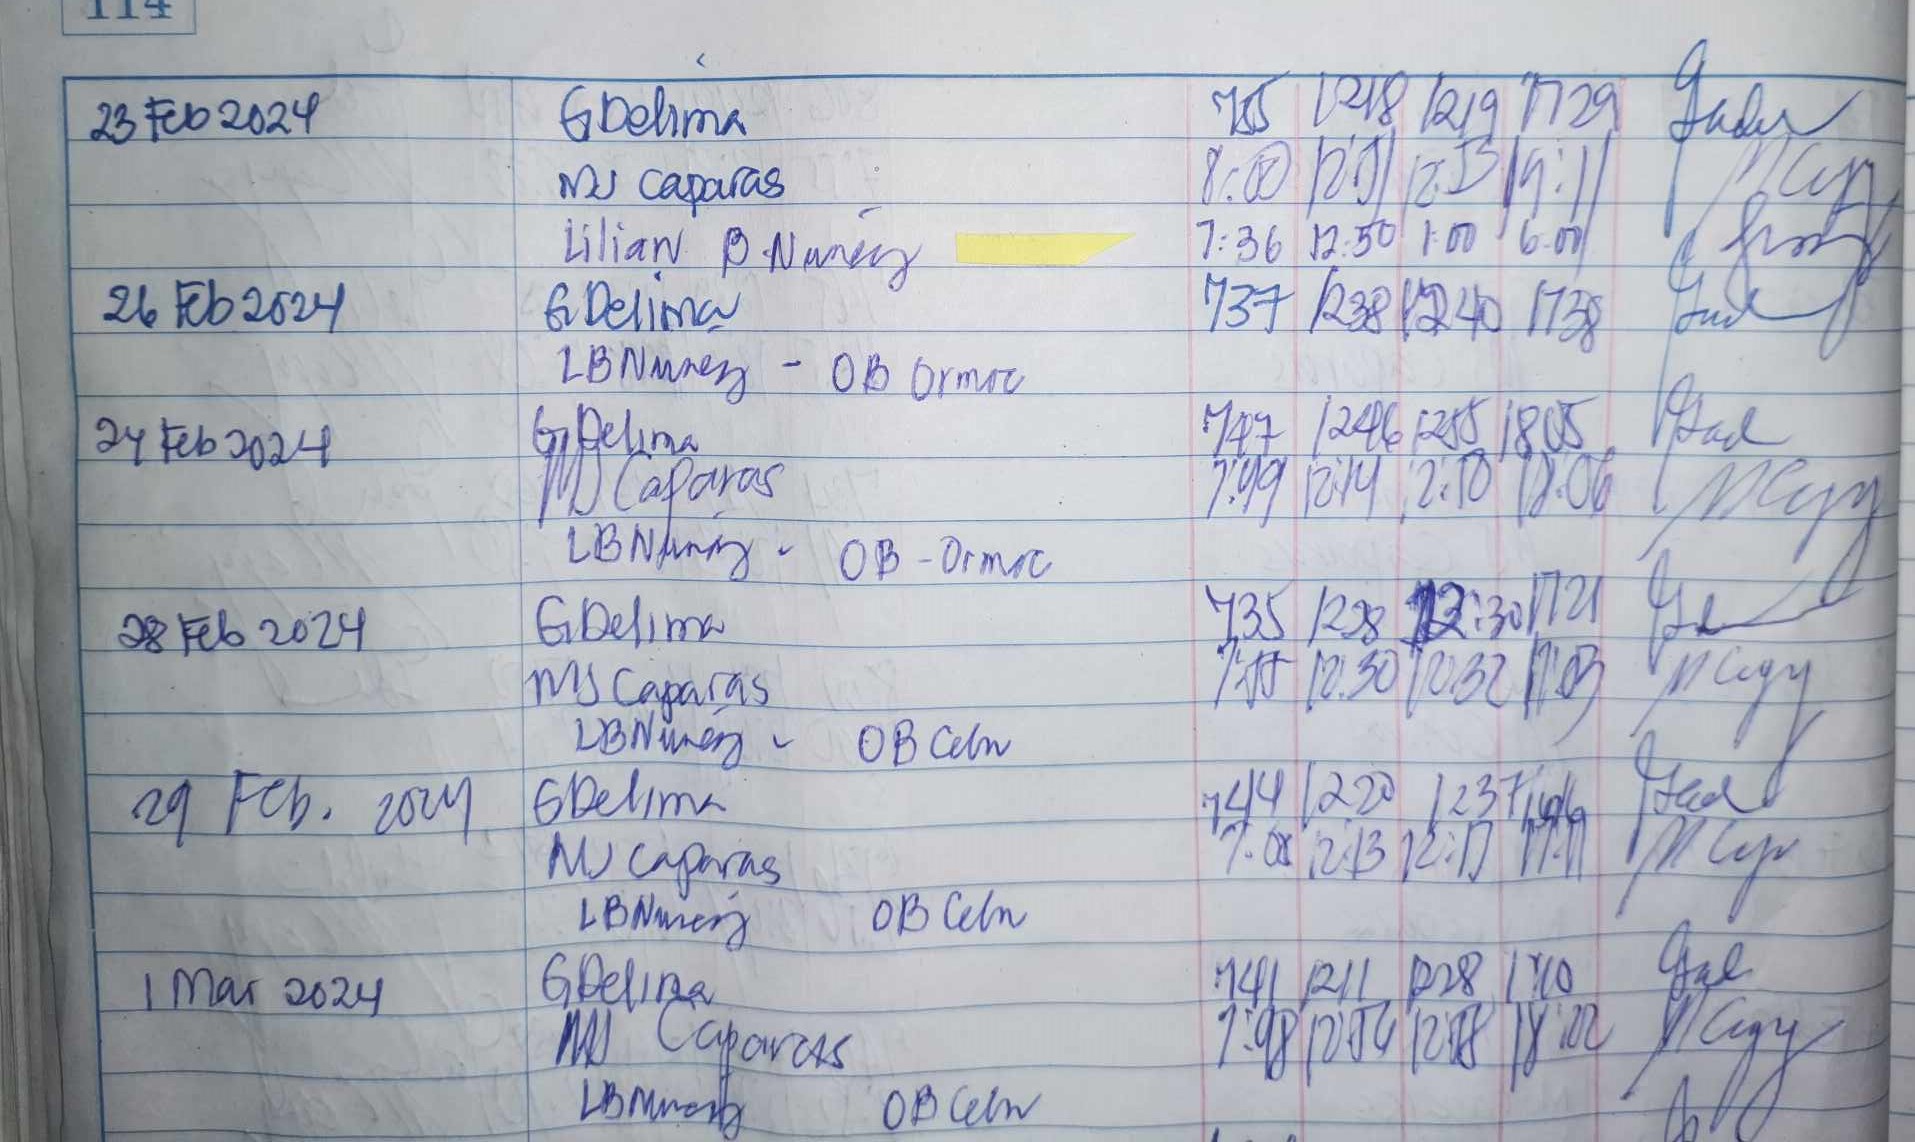 114
23 Feb 2024 G Delima 755 1218 1219 1729
MJ Caparas 8:00 12:51 12:53 19:11
Lilian B Nunez 7:36 12:50 1:00 6:00
26 Feb 2024 G Delima 737 1238 1240 1738
LB Nunez - OB Ormoc
27 Feb 2024 G Delima 747 1246 1255 1805
MJ Caparas 7:49 12:14 18:06
LB Nunez - OB - Ormoc
28 Feb 2024 G Delima 735 1228 12:30 1721
MJ Caparas 12:30 12:32
LB Nunez - OB Cebu
29 Feb. 2024 G Delima 744 1220 1237
MJ Caparas 7:08 12:13 12:17 17:11
LB Nunez OB Cebu
1 Mar 2024 G Delima 741 1211 1228 1710
MJ Caparas 7:48 12:54 18:02
LB Nunez OB Cebu